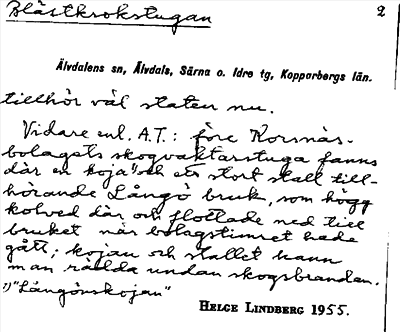 Blästkrokstugan 2
Älvdalens sn, Älvdals, Särna o. Idre tg, Kopparbergs län.
tillhör väl staten nu.
Vidare enl. A.T.: före Korsnäs-
bolagets skogvaktarstuga fanns
där en koja¹⁾ och ett stort stall till-
hörande Långö bruk, som högg
kolved där och flottade ned till
bruket när bolagstimret hade
gått; kojan och stallet hann
man rädda undan skogsbranden.
¹⁾"Långönskojan"
HELGE LINDBERG 1955.